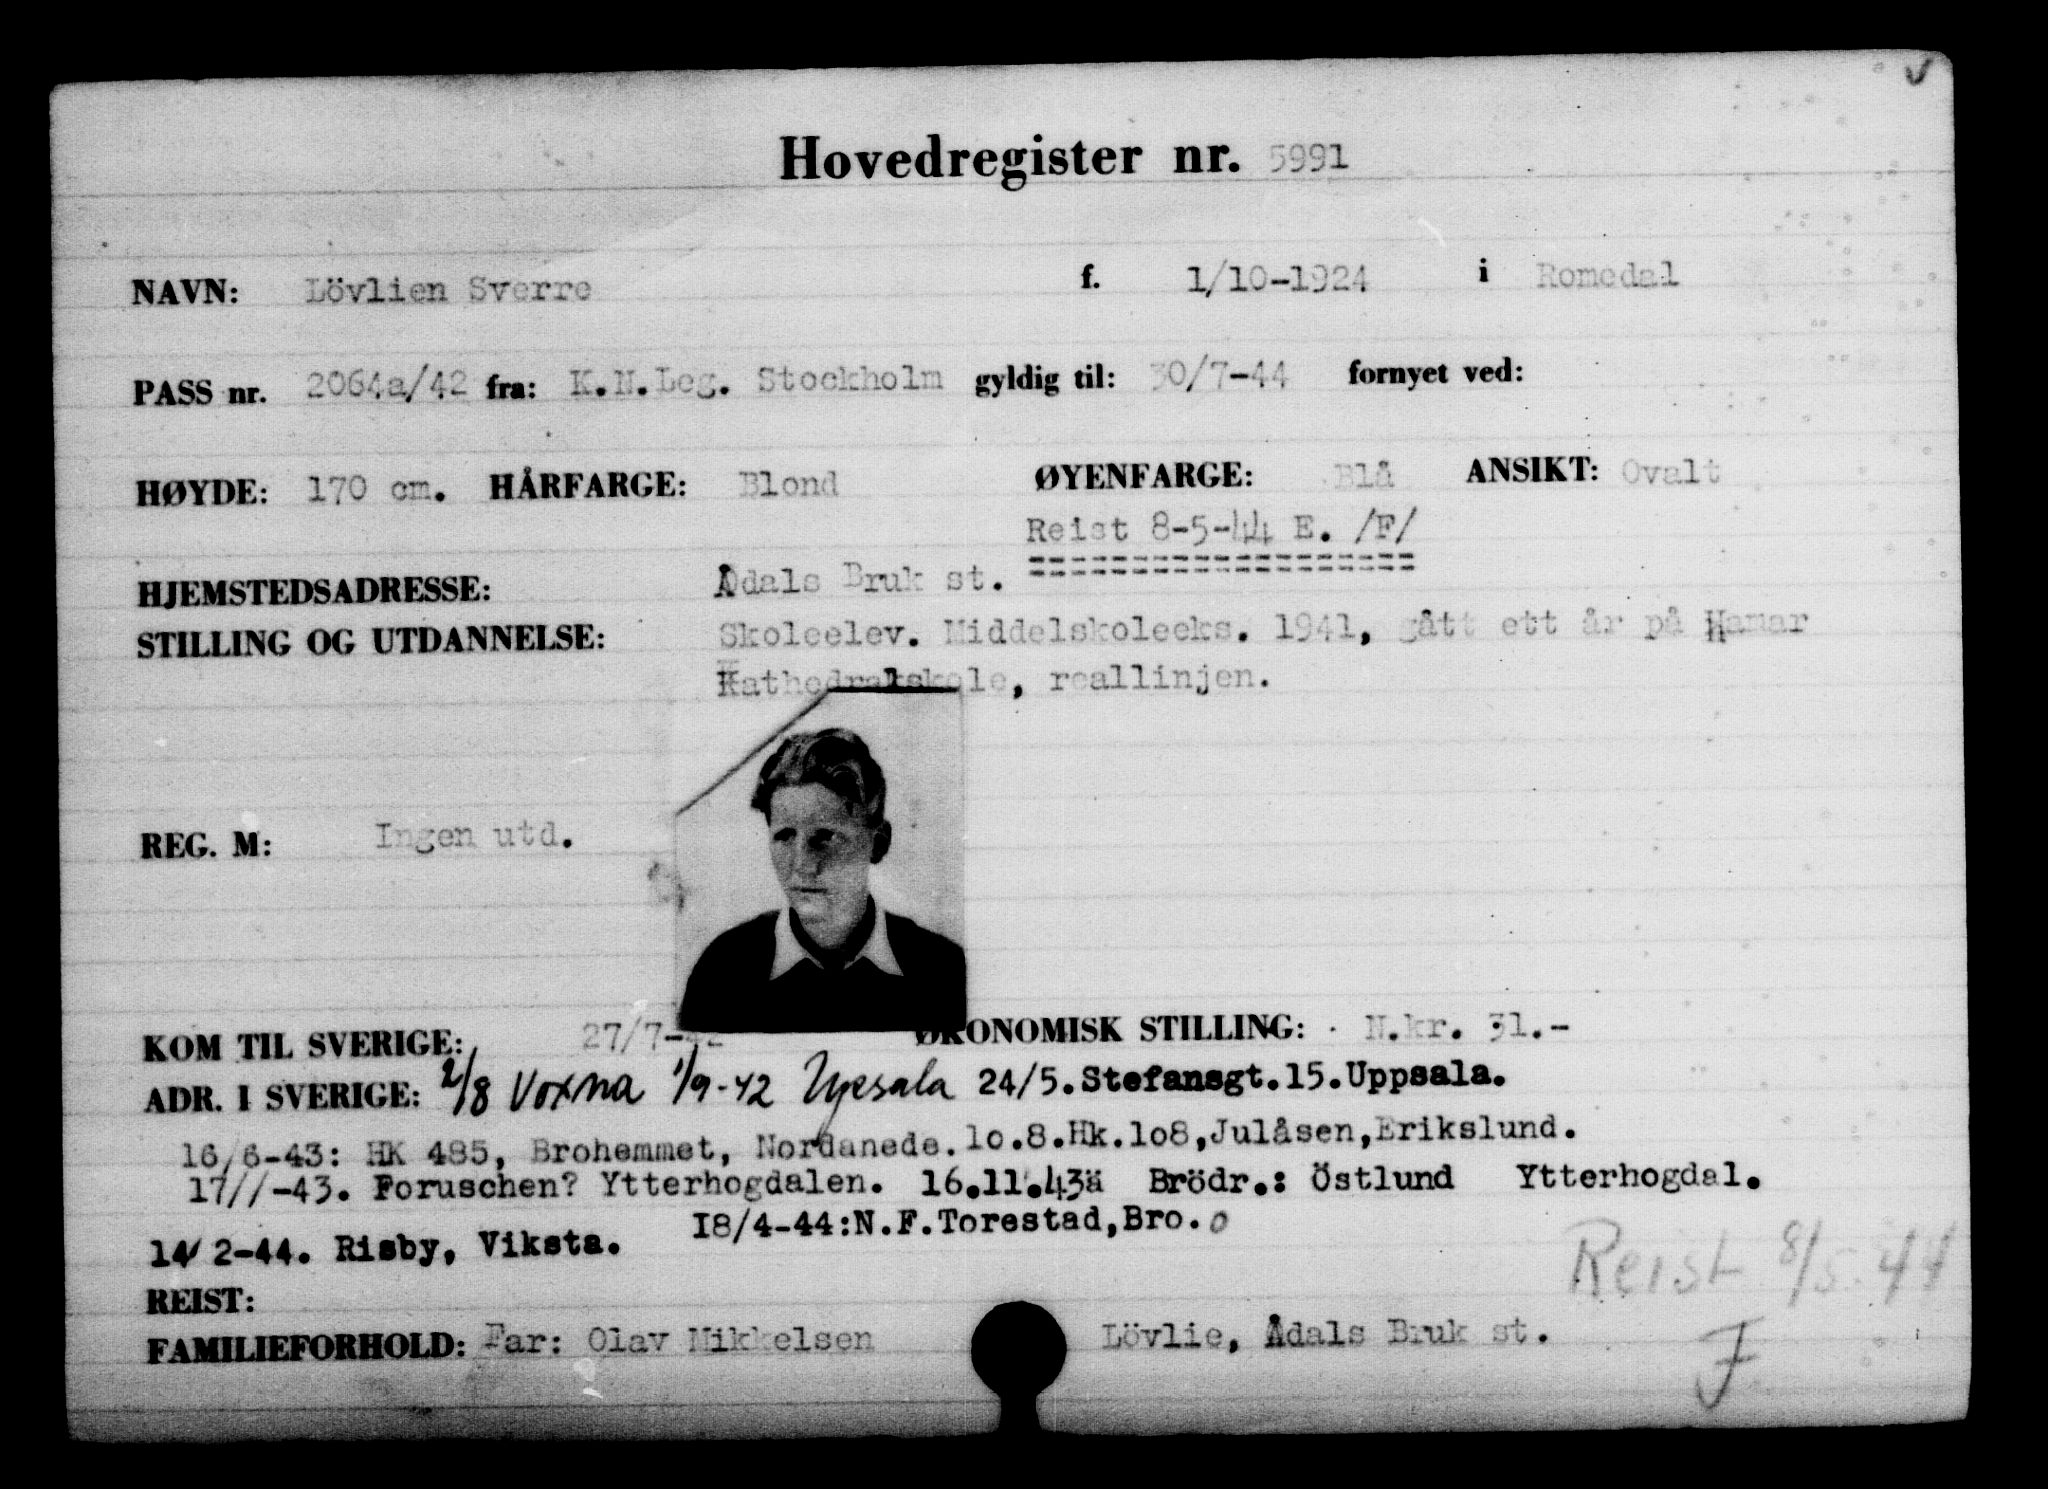 Hovedregister nr. 5991
NAVN: Lövlien Sverre f. 1/10-1924 i Romedal
PASS nr. 2064a/42 fra: K.N.Leg. Stockholm gyldig til: 30/7-44 fornyet ved:
HØYDE: 170 cm. HÅRFARGE: Blond ØYENFARGE: Blå ANSIKT: Ovalt
Reist 8-5-44 E. /F/
HJEMSTEDSADRESSE: Ådals Bruk st.
STILLING OG UTDANNELSE: Skoleelev. Middelskoleeks. 1941, gått ett år på Hamar
Kathedralskole, reallinjen.
REG. M: Ingen utd.
KOM TIL SVERIGE: 27/7-42 ØKONOMISK STILLING: N.kr. 31.-
ADR. I SVERIGE: 2/8 Voxna 1/9-42 Upsala 24/5.Stefansgt.15.Uppsala.
16/6-43: HK 485, Brohemmet, Nordanede. 10.8.Hk.108,Julåsen,Erikslund.
17//-43. Foruschen? Ytterhogdalen. 16.11.43ä Brödr.: Östlund Ytterhogdal.
14/ 2-44. Risby, Viksta. 18/4-44:N.F.Torestad,Bro.
Reist 8/5-44
REIST:
FAMILIEFORHOLD: Far: Olav Mikkelsen Lövlie, Ådals Bruk st.
F